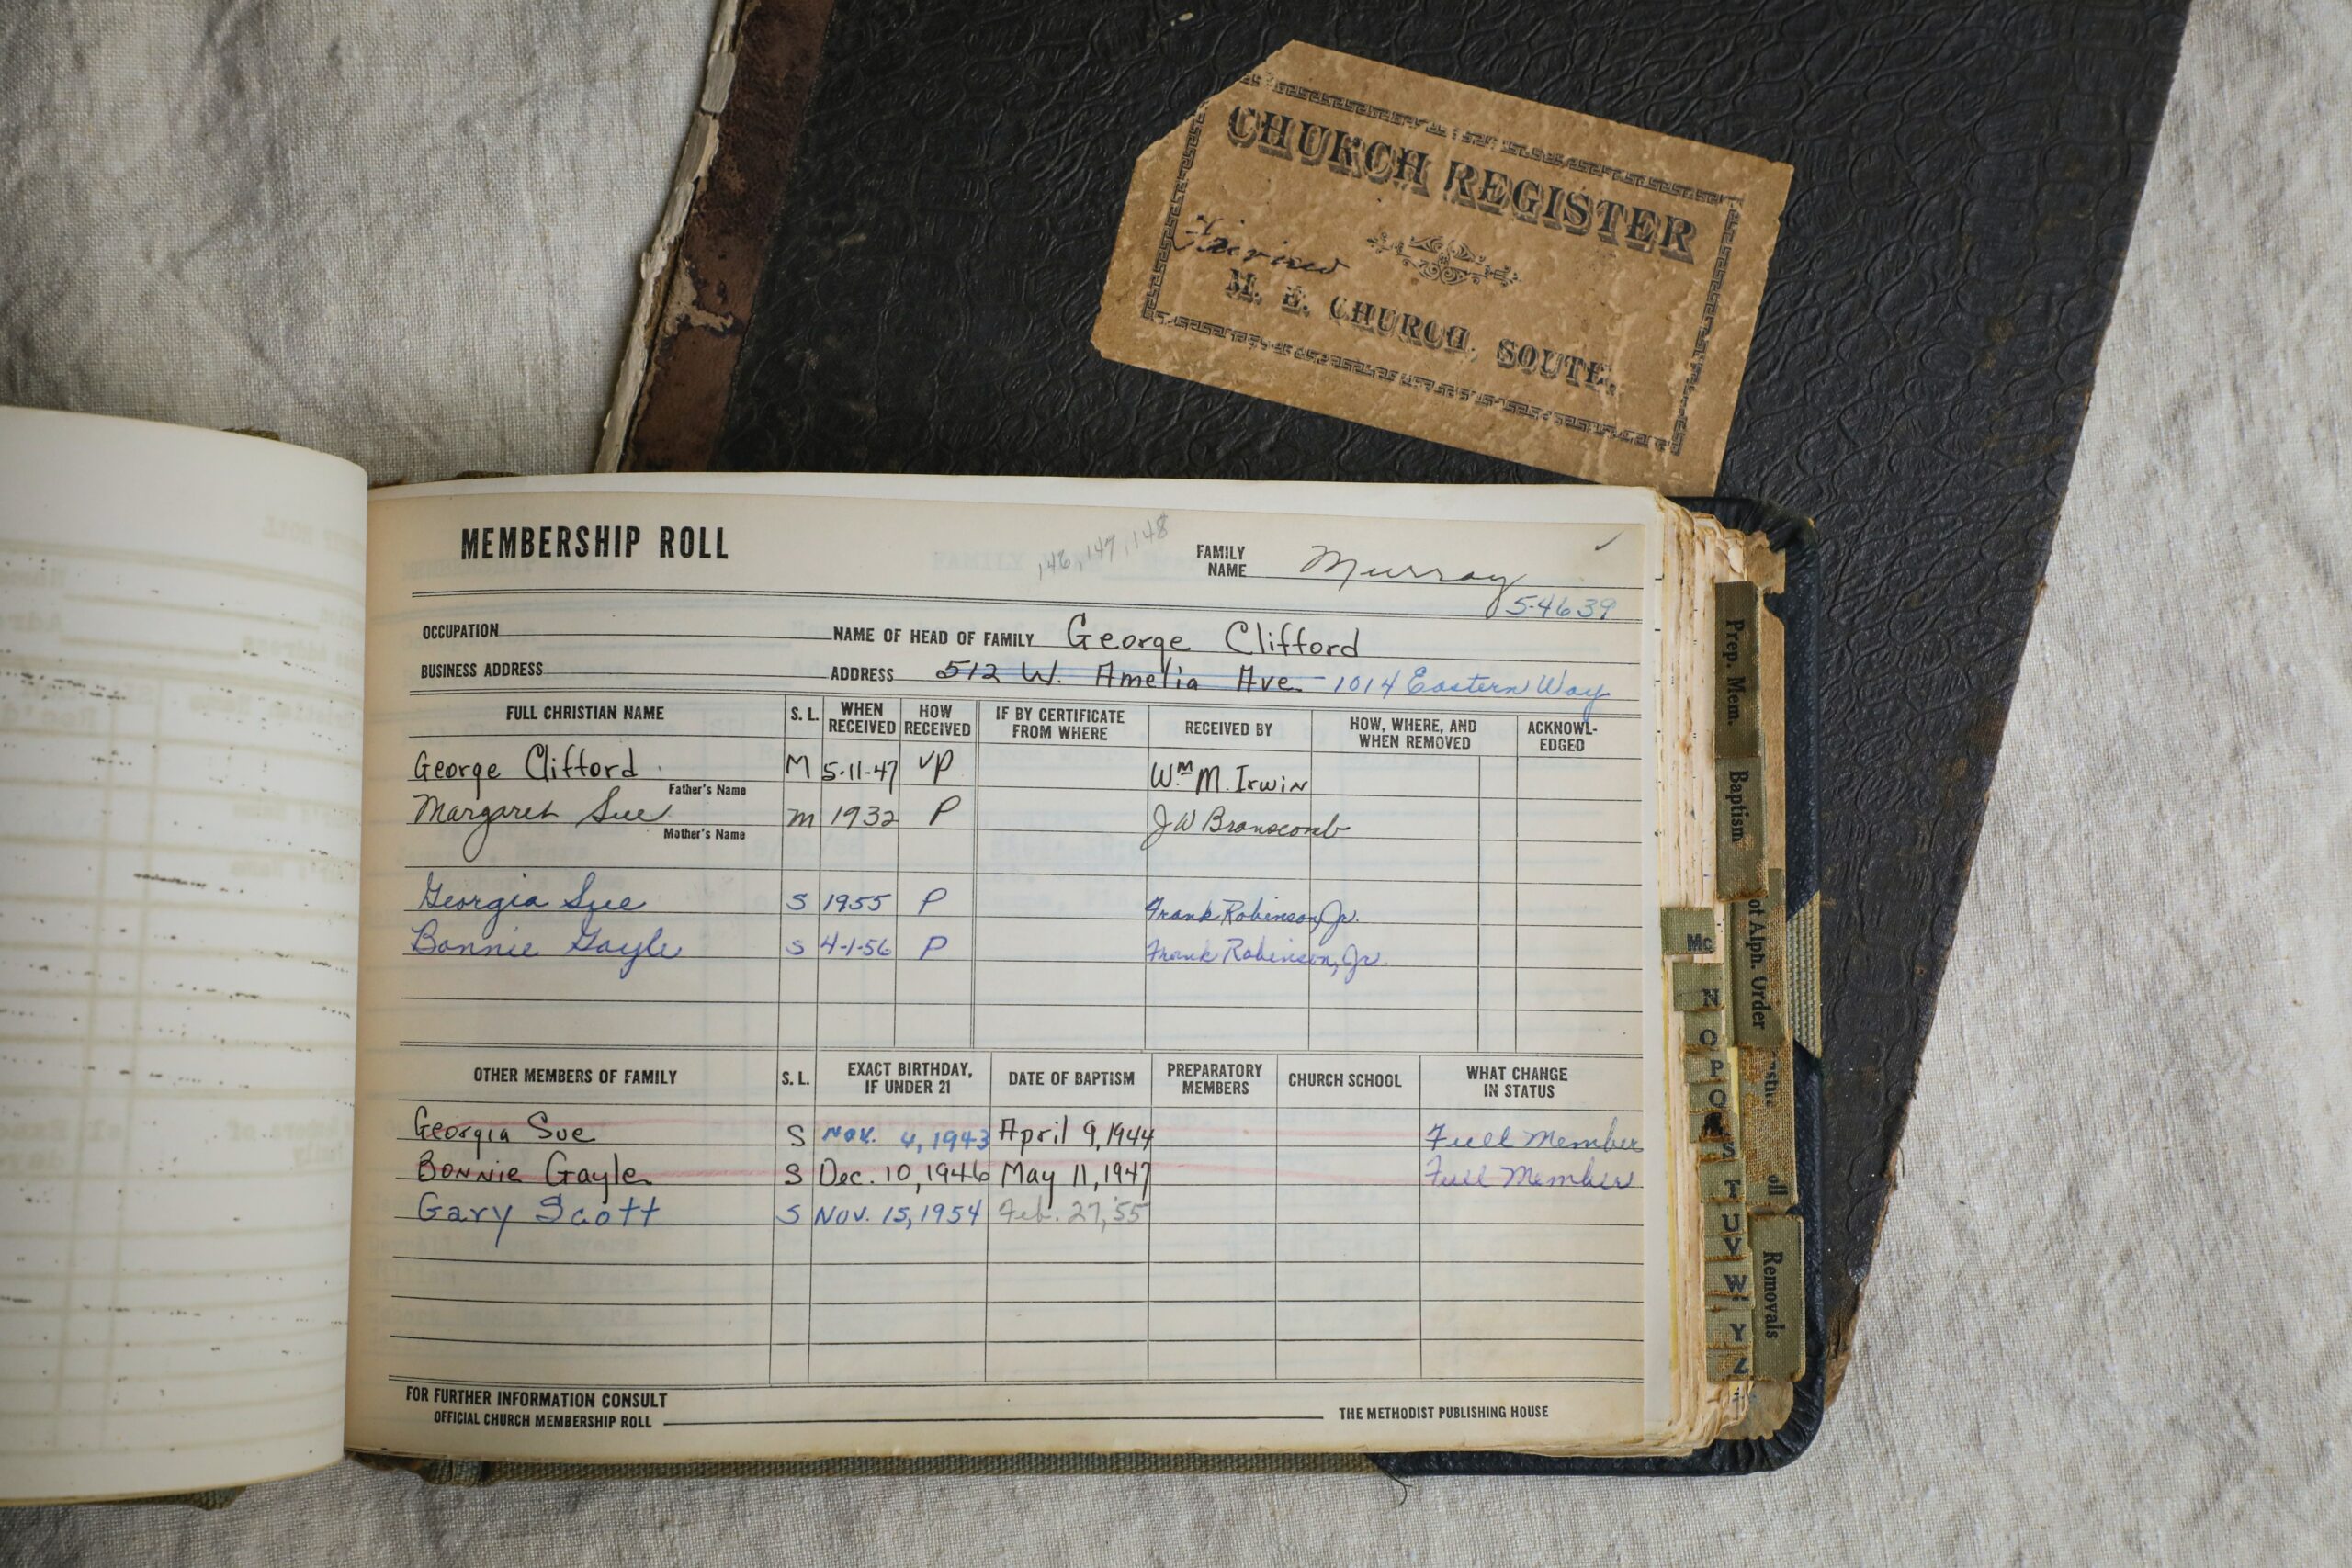 CHURCH REGISTER
M. E. CHURCH, SOUTH.
MEMBERSHIP ROLL
146, 147, 148
FAMILY NAME Murray
5-4639
OCCUPATION NAME OF HEAD OF FAMILY George Clifford
BUSINESS ADDRESS ADDRESS 512 W. Amelia Ave. 1014 Eastern Way
FULL CHRISTIAN NAME S. L. WHEN RECEIVED HOW RECEIVED IF BY CERTIFICATE FROM WHERE RECEIVED BY HOW, WHERE, AND WHEN REMOVED ACKNOWL-EDGED
George Clifford M 5-11-47 VP Wm M. Irwin
Father's Name
Margaret Sue m 1932 P J W Branscomb
Mother's Name
Georgia Sue S 1955 P Frank Robinson, Jr.
Bonnie Gayle S 4-1-56 P Frank Robinson, Jr.
OTHER MEMBERS OF FAMILY S. L. EXACT BIRTHDAY, IF UNDER 21 DATE OF BAPTISM PREPARATORY MEMBERS CHURCH SCHOOL WHAT CHANGE IN STATUS
Georgia Sue S Nov. 4, 1943 April 9, 1944 Full Member
Bonnie Gayle S Dec. 10, 1946 May 11, 1947 Full Member
Gary Scott S Nov. 15, 1954 Feb. 27, '55
FOR FURTHER INFORMATION CONSULT
OFFICIAL CHURCH MEMBERSHIP ROLL THE METHODIST PUBLISHING HOUSE
Prep. Mem.
Baptism
Alph. Order
Removals
Mc
N
O
P
Q
S
T
U
V
W
Y
Z